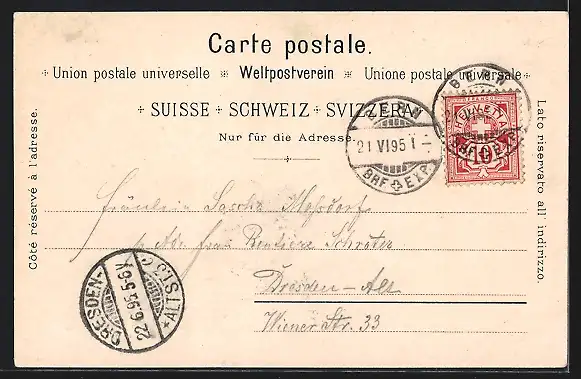 Carte postale.
Union postale universelle Weltpostverein Unione postale universale
SUISSE SCHWEIZ SVIZZERA
Nur für die Adresse.
Côté réservé à l'adresse.
Lato riservato all' indirizzo.
BERN
21 VI 95 1-
BRF EXP.
BERN
BRF EXP.
HELVETIA
10
Fräulein Sascha
p. Adr. frau Rentiere Schröter
Dresden-Alt
Wiener Str. 33
DRESDEN-
22.6.95.5-6V
ALTST.